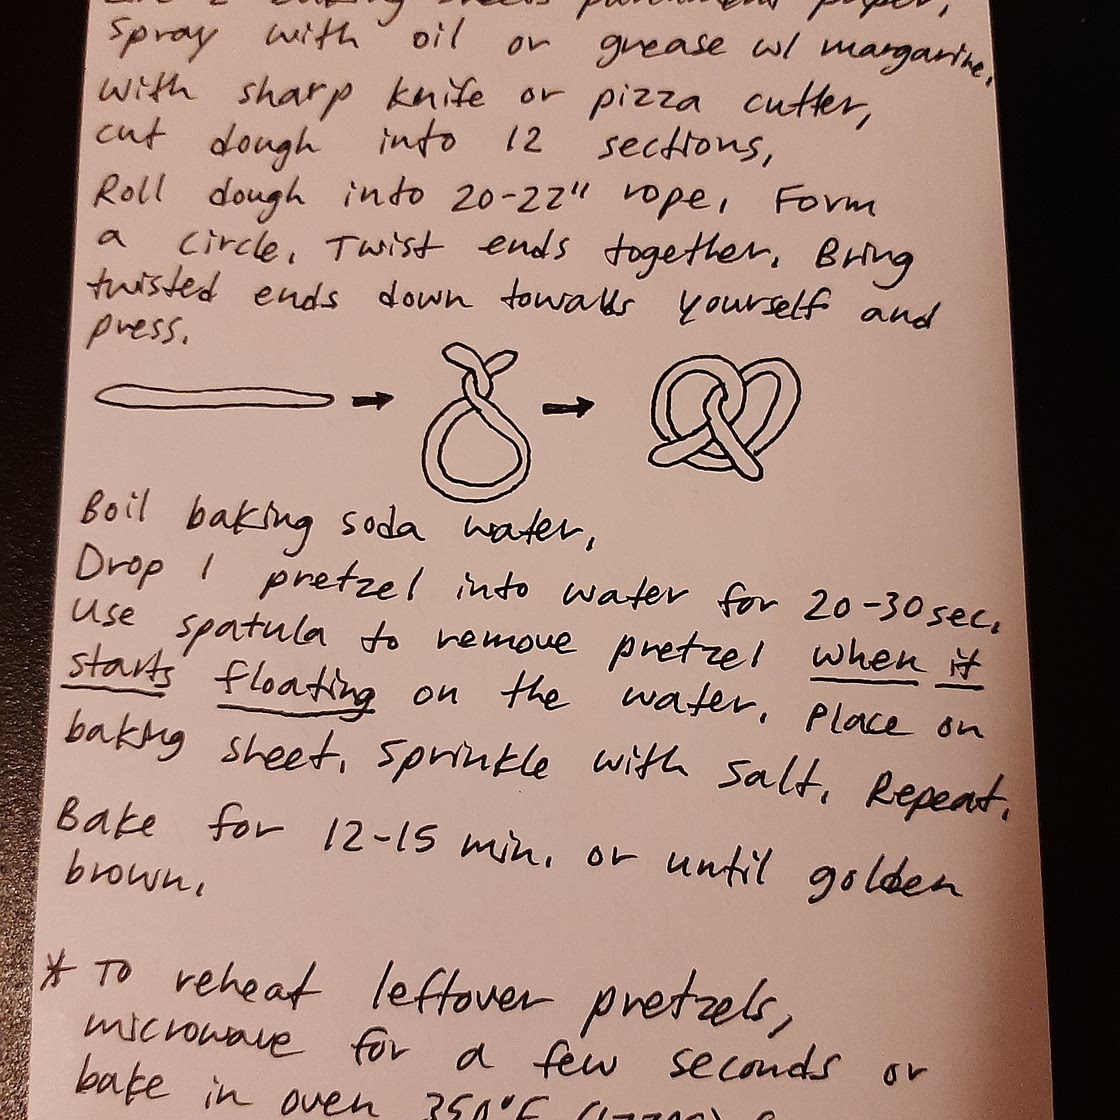 2 baking sheets parchment paper,
Spray with oil or grease w/ margarine.
With sharp knife or pizza cutter,
cut dough into 12 sections,
Roll dough into 20-22" rope, Form
a circle. Twist ends together. Bring
twisted ends down towards yourself and
press.
Boil baking soda water,
Drop 1 pretzel into water for 20-30 sec.
Use spatula to remove pretzel when it
starts floating on the water. Place on
baking sheet. Sprinkle with salt. Repeat.
Bake for 12-15 min. or until golden
brown.
* To reheat leftover pretzels,
microwave for a few seconds or
bake in oven 350°F